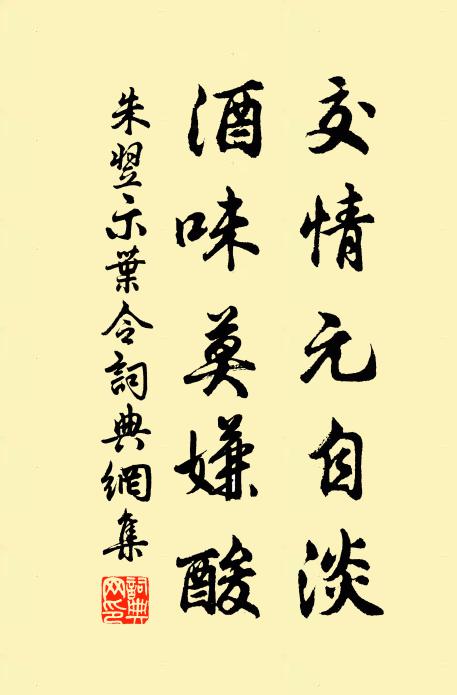 交情元自淡
酒味莫嫌酸
朱翌示葉令詞典網集
詞典网印